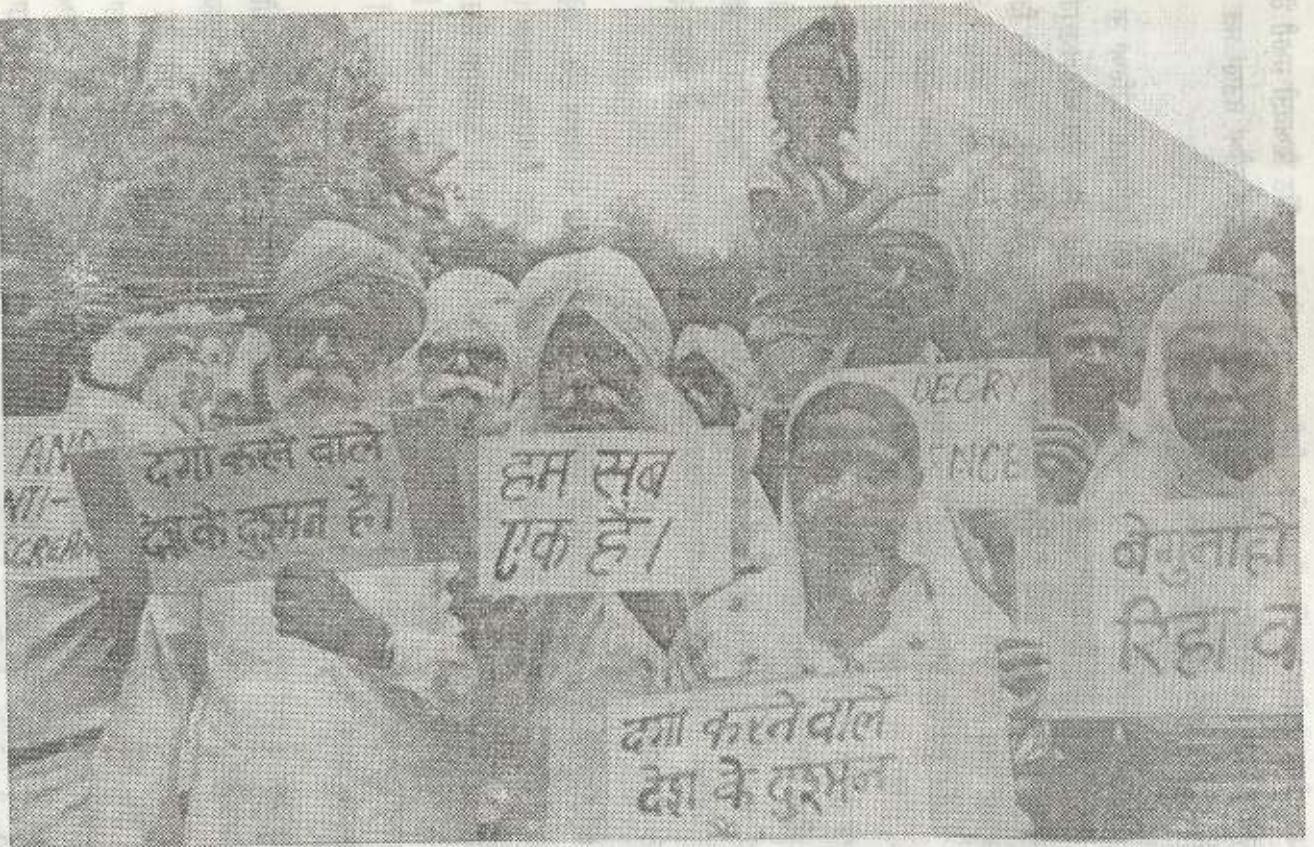 AND
दंगा करने वाले
देश के दुश्मन है।
हम सब
एक है।
DECRY
ENCE
बेगुनाहो
रिहा क
दंगा करने वाले
देश के दुश्मन